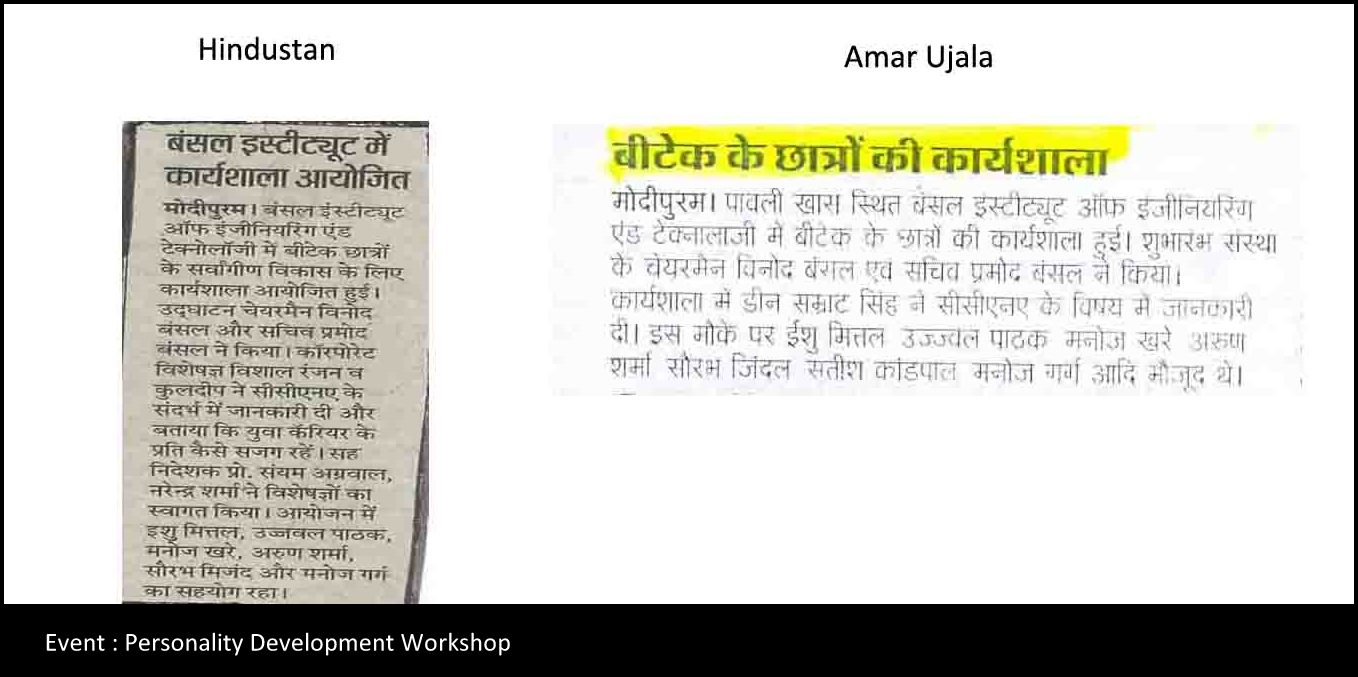 Hindustan
बंसल इस्टीट्यूट में
कार्यशाला आयोजित
मोदीपुरम। बंसल इंस्टीट्यूट
ऑफ इंजीनियरिंग एंड
टेक्नोलॉजी में बीटेक छात्रों
के सर्वांगीण विकास के लिए
कार्यशाला आयोजित हुई।
उद्घाटन चेयरमैन विनोद
बंसल और सचिव प्रमोद
बंसल ने किया। कॉरपोरेट
विशेषज्ञ विशाल रंजन व
कुलदीप ने सीसीएनए के
संदर्भ में जानकारी दी और
बताया कि युवा कॅरियर के
प्रति कैसे सजग रहें। सह
निदेशक प्रो. संयम अग्रवाल,
नरेन्द्र शर्मा ने विशेषज्ञों का
स्वागत किया। आयोजन में
इशु मित्तल, उज्जवल पाठक,
मनोज खरे, अरुण शर्मा,
सौरभ मिजंद और मनोज गर्ग
का सहयोग रहा।
Amar Ujala
बीटेक के छात्रों की कार्यशाला
मोदीपुरम। पावली खास स्थित बंसल इंस्टीट्यूट ऑफ इंजीनियरिंग
एंड टेक्नालाजी में बीटेक के छात्रों की कार्यशाला हुई। शुभारंभ संस्था
के चेयरमैन विनोद बंसल एवं सचिव प्रमोद बंसल ने किया।
कार्यशाला में डीन सम्राट सिंह ने सीसीएनए के विषय में जानकारी
दी। इस मौके पर ईशु मित्तल उज्जवल पाठक मनोज खरे अरुण
शर्मा सौरभ जिंदल सतीश कांडपाल मनोज गर्ग आदि मौजूद थे।
Event : Personality Development Workshop